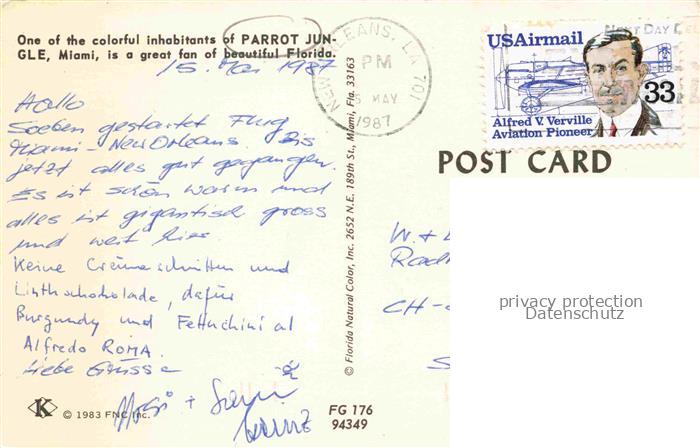 One of the colorful inhabitants of PARROT JUN-
GLE, Miami, is a great fan of beautiful Florida.
15. Mai 1987
Hallo
Soeben gestartet Flug
Miami - New Orleans. Bis
jetzt alles gut gegangen.
Es ist schön warm und
alles ist gigantisch gross
und weit hier
Keine Crèmeschnitten und
Linthschokolade, dafür
Burgundy und Fettuchini al
Alfredo ROMA.
Liebe Grüsse
© 1983 FNC Inc.
FG 176
94349
© Florida Natural Color, Inc. 2652 N.E. 189th St., Miami, Fla. 33163
NEW ORLEANS, LA 701
PM
MAY
1987
NEXT DAY
USAirmail
33
Alfred V. Verville
Aviation Pioneer
POST CARD
W. +
CH-
privacy protection
Datenschutz